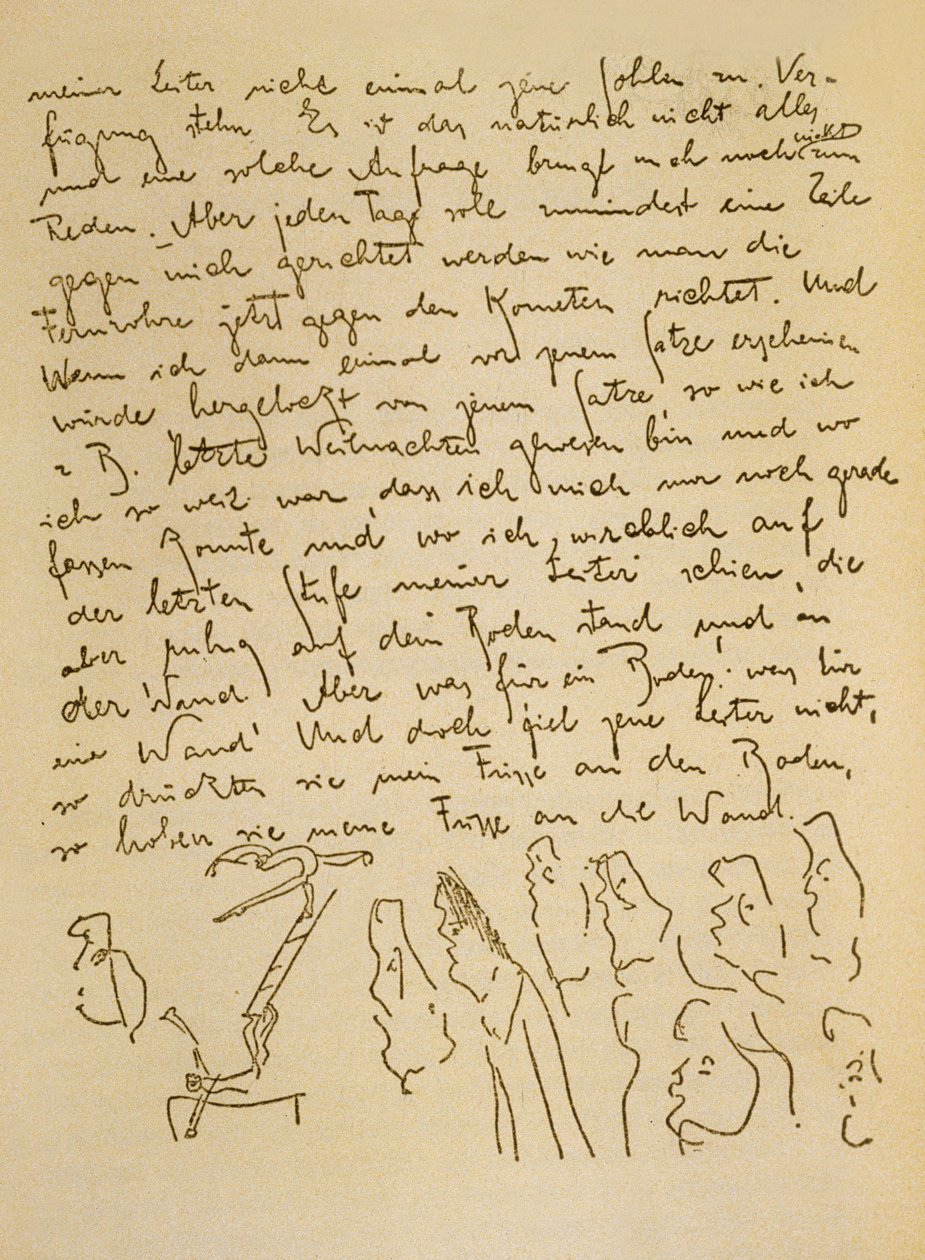 meiner Leiter nicht einmal jene Sohlen zu Ver-
fügung stehn. Es ist das natürlich nicht alles
und eine solche Anfrage bringt mich noch nicht zum
Reden. Aber jeden Tag soll zumindest eine Zeile
gegen mich gerichtet werden wie man die
Fernrohre jetzt gegen den Kometen richtet. Und
Wenn ich dann einmal vor jenem Satze erscheinen
würde, hergelockt von jenem Satze, so wie ich
z B. letzte Weihnachten gewesen bin und wo
ich so weit war, dass ich mich nur noch gerade
fassen konnte und wo ich wirklich auf
der letzten Stufe meiner Leiter schien, die
aber ruhig auf dem Boden stand und an
der Wand. Aber was für ein Boden! was für
eine Wand! Und doch fiel jene Leiter nicht,
so drückten sie mein Füsse an den Boden,
so hoben sie meine Füsse an die Wand.